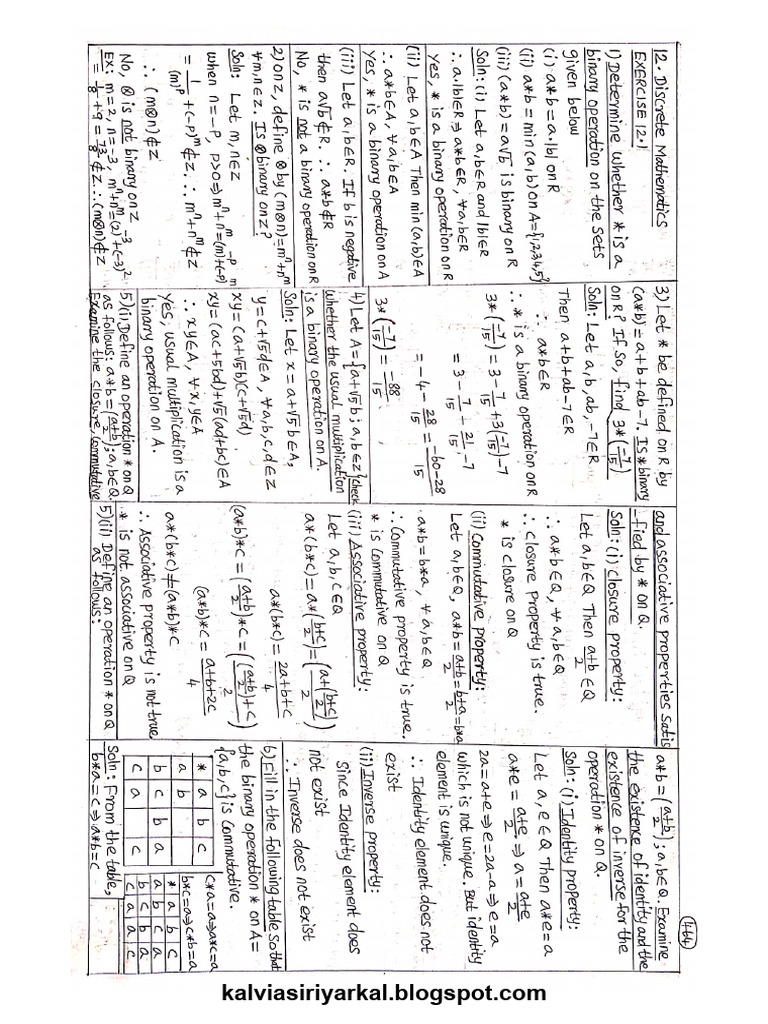 464
12. Discrete Mathematics
EXERCISE 12.1
1) Determine whether * is a
binary operation on the sets
given below
(i) a*b = a.|b| on R
(ii) a*b = min (a,b) on A={1,2,3,4,5}
(iii) (a*b) = a√b is binary on R
Soln: (i) Let a,b∈R and |b|∈R
∴ a.|b|∈R ⇒ a*b∈R, ∀a,b∈R
Yes, * is a binary operation on R
(ii) Let a,b∈A Then min (a,b)∈A
∴ a*b∈A, ∀a,b∈A
Yes, * is a binary operation on A
(iii) Let a,b∈R. If b is negative
then a√b∉R. ∴ a*b∉R
No, * is not a binary operation on R
2) On Z, define ⊗ by (m⊗n) = mⁿ+nᵐ
∀m,n∈Z. Is ⊗ binary on Z?
Soln: Let m,n∈Z
when n=-p, p>0 ⇒ mⁿ+nᵐ = (m)⁻ᵖ+(-p)ᵐ
= 1/(m)ᵖ + (-p)ᵐ ∉Z ∴ mⁿ+nᵐ∉Z
∴ (m⊗n)∉Z
No, ⊗ is not binary on Z
EX: m=2, n=-3, mⁿ+nᵐ=(2)⁻³+(-3)²
= 1/8 + 9 = 73/8 ∉Z ∴ (m⊗n)∉Z
3) Let * be defined on R by
(a*b) = a+b+ab-7. Is * binary
on R? If so, find 3*(-7/15)
Soln: Let a,b,ab,-7∈R
Then a+b+ab-7∈R
∴ a*b∈R
∴ * is a binary operation on R
3*(-7/15) = 3 - 7/15 + 3(-7/15) - 7
= 3 - 7/15 + 21/15 - 7
= -4 - 28/15 = -60-28/15
3*(-7/15) = -88/15
4) Let A={a+√5b; a,b∈Z} check
whether the usual multiplication
is a binary operation on A.
Soln: Let x = a+√5b∈A,
y = c+√5d∈A, ∀a,b,c,d∈Z
xy = (a+√5b)(c+√5d)
xy = (ac+5bd)+√5(ad+bc)∈A
∴ xy∈A, ∀x,y∈A
Yes, usual multiplication is a
binary operation on A.
5)(i) Define an operation * on Q
as follows: a*b = (a+b/2); a,b∈Q
Examine the closure, commutative
and associative properties satis
fied by * on Q.
Soln: (i) closure property:
Let a,b∈Q Then a+b/2 ∈Q
∴ a*b∈Q, ∀a,b∈Q
∴ closure property is true.
* is closure on Q
(ii) Commutative property:
Let a,b∈Q, a*b = a+b/2 = b+a/2 = b*a
a*b = b*a, ∀a,b∈Q
∴ Commutative property is true.
* is Commutative on Q
(iii) Associative property:
Let a,b,c∈Q
a*(b*c) = a*(b+c/2) = (a+(b+c/2)/2)
a*(b*c) = 2a+b+c/4
(a*b)*c = (a+b/2)*c = ((a+b/2)+c/2)
(a*b)*c = a+b+2c/4
a*(b*c) ≠ (a*b)*c
∴ Associative property is not true
* is not associative on Q
5)(ii) Define an operation * on Q
as follows:
a*b = (a+b/2); a,b∈Q. Examine
the existence of identity and the
existence of inverse for the
operation * on Q.
Soln: (i) Identity property:
Let a,e∈Q Then a*e = a
a*e = a+e/2 ⇒ a = a+e/2
2a = a+e ⇒ e = 2a-a ⇒ e = a
which is not unique. But identity
element is unique.
∴ Identity element does not
exist
(ii) Inverse property:
Since Identity element does
not exist
∴ Inverse does not exist
6) Fill in the following table so that
the binary operation * on A=
{a,b,c} is commutative.
* a b c
a b
b c b a
c a c
c*a=a⇒a*c=a
b*c=a⇒c*b=a
* a b c
a b c a
b c b a
c a a c
Soln: From the table,
b*a = c ⇒ a*b = c
kalviasiriyarkal.blogspot.com